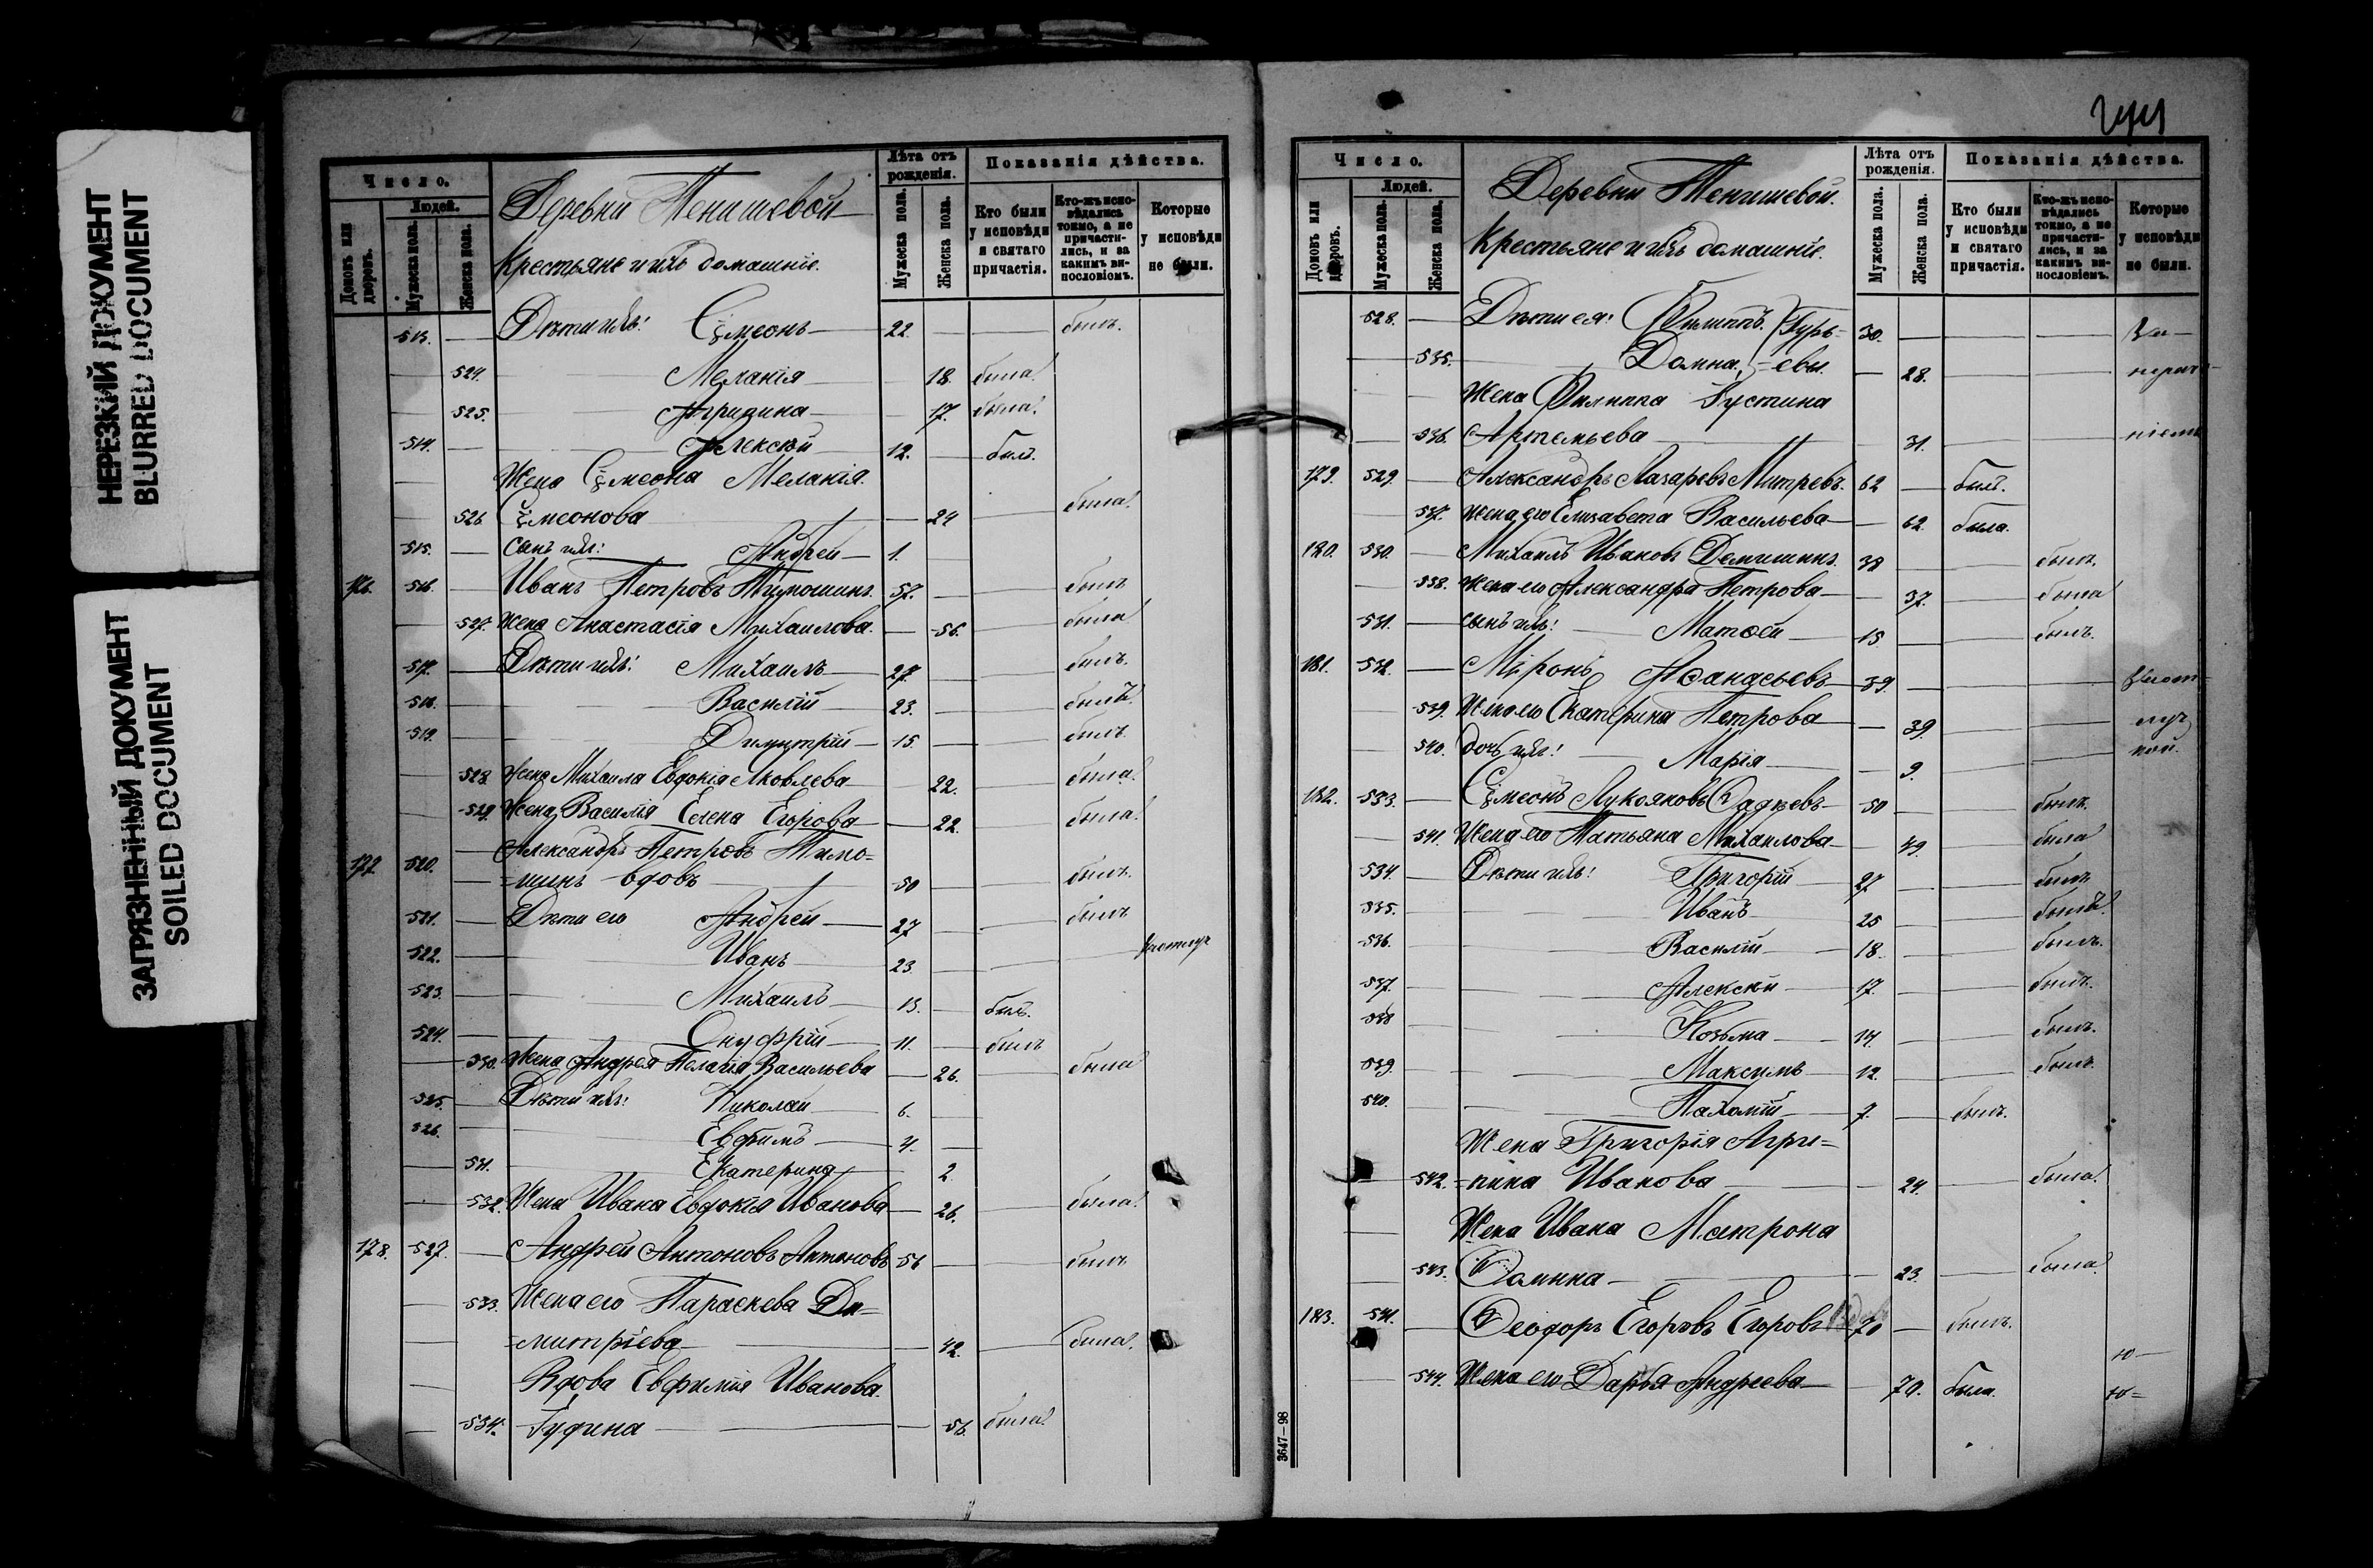 НЕРЕЗКИЙ ДОКУМЕНТ
BLURRED DOCUMENT
ЗАГРЯЗНЕННЫЙ ДОКУМЕНТ
SOILED DOCUMENT
Число.
Домовъ или дворовъ.
Людей.
Мужеска пола.
Женска пола.
Деревни Тенишевой
Крестьяне и ихъ домашніе.
Лѣта отъ рожденія.
Мужеска пола.
Женска пола.
Показанія дѣйства.
Кто были у исповѣди и святаго причастія.
Кто-жъ исповѣдались токмо, а не причастились, и за какимъ винословіемъ.
Которые у исповѣди не были.
513. Дѣти ихъ: Сѵмеонъ 22. былъ.
524. Меланія 18. была.
525. Агрипина 17. была.
514. Алексѣй 12. былъ.
Жена Сѵмеона Меланія
526 Сѵмеонова 24 была.
515. сынъ ихъ: Андрей 1.
176. 516. Иванъ Петровъ Тимошинъ. 57. былъ
527. Жена Анастасія Михаилова. 56. была
517. Дѣти ихъ: Михаилъ 27. былъ.
518. Василій 23. былъ.
519. Димитрій 15. былъ
528. Жена Михаила Евдокія Яковлева 22. была.
529. Жена Василія Елена Егорова 22. была.
177 520. Александръ Петровъ Тимо=
=шинъ вдовъ 50 былъ.
521. Дѣти его Андрей 27 былъ
522. Иванъ 23.
523. Михаилъ 13. былъ.
524. Онуфрій 11. былъ
530. Жена Андрея Пелагія Васильева 26. была
525. Дѣти ихъ: Николай 6.
526. Евфимъ 4.
531. Екатерина 2.
532. Жена Ивана Евдокія Иванова 26. была.
178. 527. Андрей Антоновъ Антоновъ 56 былъ
533. Жена его Параскева Ди=
=митріева 42. была.
Вдова Евфимія Иванова
534. Гудина 56. была.
Число.
Домовъ или дворовъ.
Людей.
Мужеска пола.
Женска пола.
Деревни Тенишевой.
Крестьяне и ихъ домашніе.
Лѣта отъ рожденія.
Мужеска пола.
Женска пола.
Показанія дѣйства.
Кто были у исповѣди и святаго причастія.
Кто-жъ исповѣдались токмо, а не причастились, и за какимъ винословіемъ.
Которые у исповѣди не были.
528. Дѣти ея: Филиппъ Гурь- 30.
535. Домна -евы. 28.
Жена Филиппа Іустина
536. Артемьева 31.
179. 529. Александръ Лазаревъ Митревъ. 62 былъ.
537. Жена его Елизавета Васильева 62. была.
180. 530. Михаилъ Ивановъ Демишинъ. 38 былъ.
538. Жена его Александра Петрова 37. была
531. сынъ ихъ: Матѳей 15 былъ.
181. 532. Миронъ Аѳанасьевъ 39.
539. Жена его Екатерина Петрова 39.
540. дочь ихъ: Марія 9.
182. 533. Сѵмеонъ Лукояновъ Ѳадѣевъ 50 былъ.
541. Жена его Татьяна Михаилова 49. была
534. Дѣти ихъ: Григорій 27 былъ
535. Иванъ 25 былъ.
536. Василій 18. былъ.
537. Алексѣй 17. былъ.
538 Козьма 14. былъ.
539. Максимъ 12. былъ.
540. Пахомій 7. былъ.
Жена Григорія Агри=
542. =пина Иванова 24. была.
Жена Ивана Матрона
543. Ѳомина 23. была.
183. 541. Ѳеодоръ Егоровъ Егоровъ 70 былъ.
544. Жена его Дарья Андреева 70. была.
3647—98